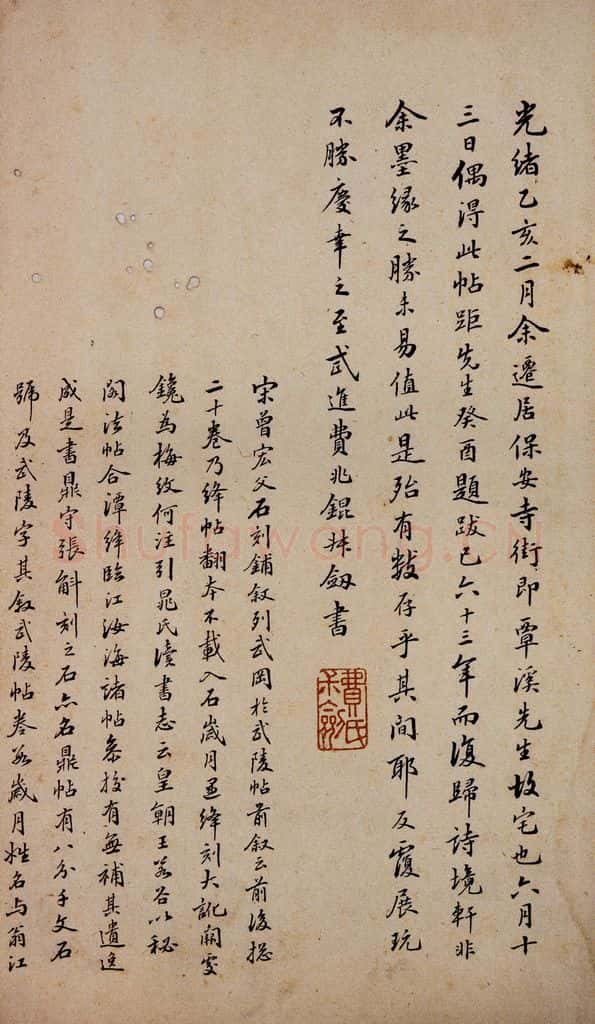 光緒乙亥二月余遷居保安寺街即覃溪先生故宅也六月十
三日偶得此帖距先生癸酉題跋已六十三年而復歸詩境軒非
余墨緣之勝未易值此是殆有數存乎其間耶反覆展玩
不勝慶幸之至武進費兆錕牀劒書
費氏
宋曾宏父石刻鋪敘列武岡於武陵帖前敘云前後摠
二十卷乃絳帖翻本不載入石歲月並絳刻大訛闕處
鐫為梅紋何注引晁氏讀書志云皇朝王若谷以秘
閣法帖合潭絳臨江汝海諸帖參校有無補其遺逸
成是書鼎守張斛刻之石亦名鼎帖有八分千文石
號及武陵字其敘武陵帖卷數歲月姓名与翁江
shufawang.cn